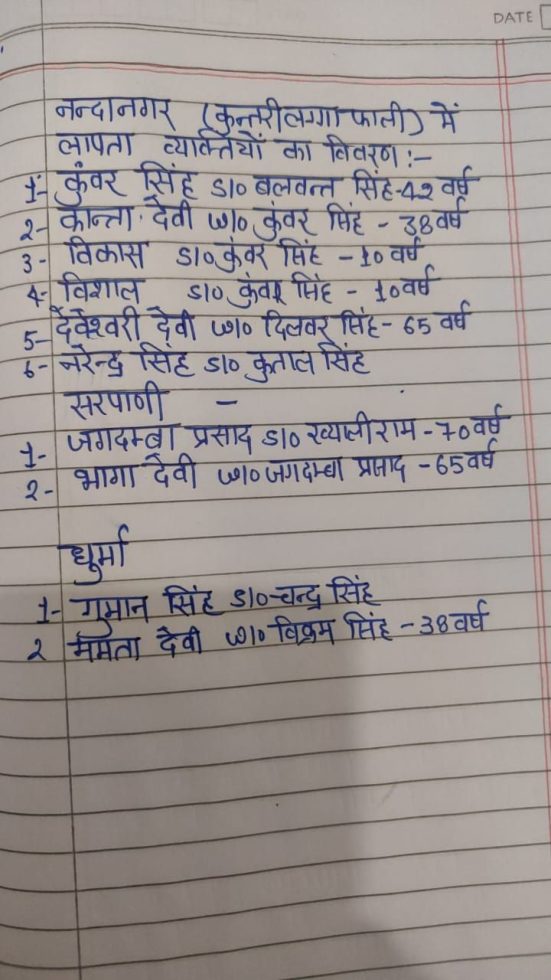 DATE
नन्दानगर (कुन्तरीलगाफाली) में
लापता व्यक्तियों का विवरण :-
1- कुंवर सिंह S/० बलवन्त सिंह-42 वर्ष
2- कान्ता देवी W/० कुंवर सिंह - 38 वर्ष
3- विकास S/० कुंवर सिंह - 10 वर्ष
4- विशाल S/० कुंवर सिंह - 10 वर्ष
5- देवेश्वरी देवी W/० दिलवर सिंह - 65 वर्ष
6- नरेन्द्र सिंह S/० कुताल सिंह
सरपाणी -
1- जगदम्बा प्रसाद S/० ख्यालीराम - 70 वर्ष
2- भागा देवी W/० जगदम्बा प्रसाद - 65 वर्ष
धुर्मा
1- गुमान सिंह S/० चन्द्र सिंह
2 ममता देवी W/० विक्रम सिंह - 38 वर्ष